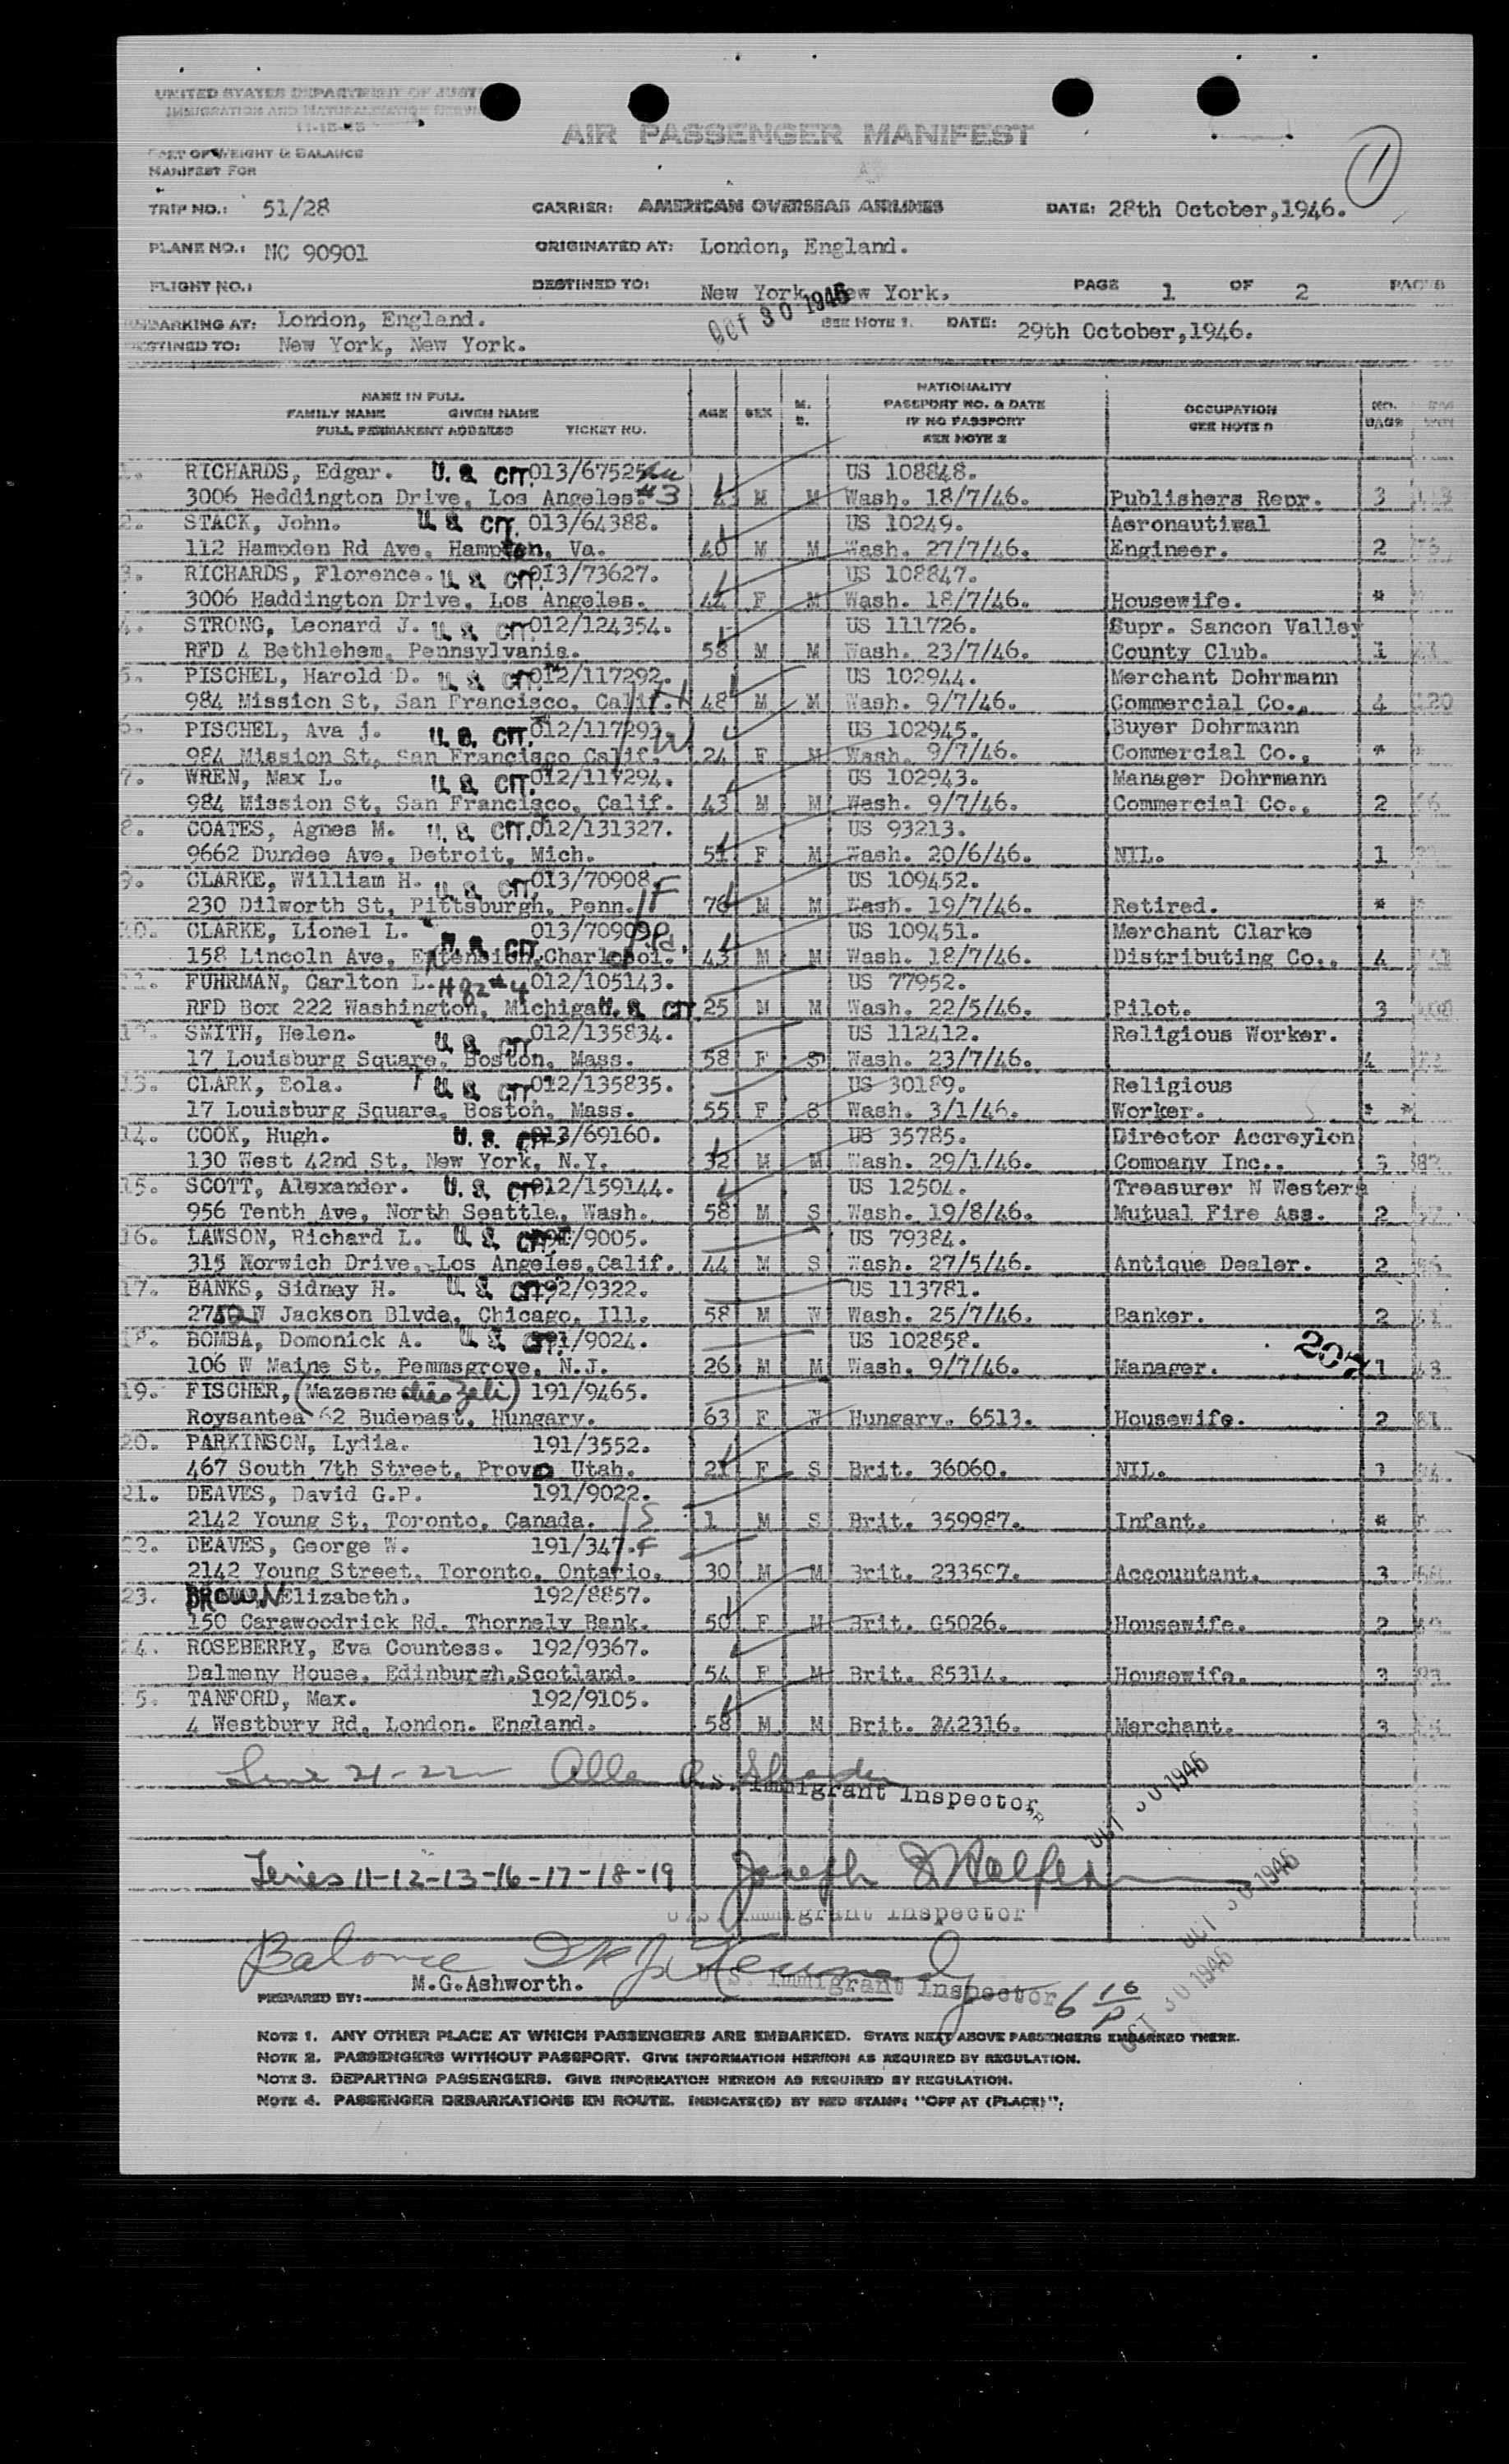 UNITED STATES DEPARTMENT OF JUST
IMMIGRATION AND NATURALIZATION SERV
11-15-45
PART OF WEIGHT & BALANCE
MANIFEST FOR
AIR PASSENGER MANIFEST
1
TRIP NO.: 51/28 CARRIER: AMERICAN OVERSEAS AIRLINES DATE: 28th October,1946.
PLANE NO.: NC 90901 ORIGINATED AT: London, England.
FLIGHT NO.: DESTINED TO: New York, New York. PAGE 1 OF 2 PAGES
OCT 30 1946
EMBARKING AT: London, England. SEE NOTE 1. DATE: 29th October,1946.
DESTINED TO: New York, New York.
NAME IN FULL
FAMILY NAME GIVEN NAME
FULL PERMANENT ADDRESS TICKET NO.
AGE SEX M. S.
NATIONALITY
PASSPORT NO. & DATE
IF NO PASSPORT
SEE NOTE 2
OCCUPATION
SEE NOTE 3
NO. BAGS
1. RICHARDS, Edgar. U. S. CIT. 013/67525 US 108848.
3006 Heddington Drive, Los Angeles. #3 M M Wash. 18/7/46. Publishers Repr. 3
2. STACK, John. U. S. CIT. 013/64388. US 10249. Aeronautiwal
112 Hampden Rd Ave, Hampton, Va. 40 M M Wash. 27/7/46. Engineer. 2
3. RICHARDS, Florence. U. S. CIT. 013/73627. US 108847.
3006 Haddington Drive, Los Angeles. 44 F M Wash. 18/7/46. Housewife. *
4. STRONG, Leonard J. U. S. CIT. 012/124354. US 111726. Supr. Sancon Valley
RFD 4 Bethlehem, Pennsylvania. 58 M M Wash. 23/7/46. County Club. 1
5. PISCHEL, Harold D. U. S. CIT. 012/117292. US 102944. Merchant Dohrmann
984 Mission St, San Francisco, Calif. H 48 M M Wash. 9/7/46. Commercial Co., 4 120
6. PISCHEL, Ava j. U. S. CIT. 012/117293. US 102945. Buyer Dohrmann
984 Mission St, San Francisco Calif. W 24 F M Wash. 9/7/46. Commercial Co., *
7. WREN, Max L. U. S. CIT. 012/117294. US 102943. Manager Dohrmann
984 Mission St, San Francisco, Calif. 43 M M Wash. 9/7/46. Commercial Co., 2
8. COATES, Agnes M. U. S. CIT. 012/131327. US 93213.
9662 Dundee Ave, Detroit, Mich. 51 F M Wash. 20/6/46. NIL. 1
9. CLARKE, William H. U. S. CIT. 013/70908. US 109452.
230 Dilworth St, Pittsburgh, Penn. F 76 M M Wash. 19/7/46. Retired. *
10. CLARKE, Lionel L. U. S. CIT. 013/70909. US 109451. Merchant Clarke
158 Lincoln Ave, Extension, Charleroi. 43 M M Wash. 18/7/46. Distributing Co., 4
11. FUHRMAN, Carlton L. 012/105143. US 77952.
RFD Box 222 Washington, Michigan. U. S. CIT. 25 M M Wash. 22/5/46. Pilot. 3
12. SMITH, Helen. U. S. CIT. 012/135834. US 112412. Religious Worker.
17 Louisburg Square, Boston, Mass. 58 F S Wash. 23/7/46. 4
13. CLARK, Eola. U. S. CIT. 012/135835. US 30189. Religious
17 Louisburg Square, Boston, Mass. 55 F S Wash. 3/1/46. Worker. * *
14. COOK, Hugh. U. S. CIT. 013/69160. US 35785. Director Accreylon
130 West 42nd St, New York, N.Y. 32 M M Wash. 29/1/46. Company Inc..
15. SCOTT, Alexander. U. S. CIT. 012/159144. US 12504. Treasurer N Western
956 Tenth Ave, North Seattle, Wash. 58 M S Wash. 19/8/46. Mutual Fire Ass. 2
16. LAWSON, Richard L. U. S. CIT. /9005. US 79384.
315 Norwich Drive, Los Angeles,Calif. 44 M S Wash. 27/5/46. Antique Dealer. 2
17. BANKS, Sidney H. U. S. CIT. 192/9322. US 113781.
W Jackson Blvde, Chicago, Ill. 58 M W Wash. 25/7/46. Banker. 2
18. BOMBA, Domonick A. U. S. CIT. 191/9024. US 102858.
106 W Maine St, Pemmsgrove, N.J. 26 M M Wash. 9/7/46. Manager. 207 1
19. FISCHER, (Mazesne Zeli) 191/9465.
Roysantea 62 Budepast, Hungary. 63 F W Hungary. 6513. Housewife. 2
20. PARKINSON, Lydia. 191/3552.
467 South 7th Street, Provo Utah. 21 F S Brit. 36060. NIL. 1
21. DEAVES, David G.P. 191/9022.
2142 Young St, Toronto, Canada. S 1 M S Brit. 359987. Infant. *
22. DEAVES, George W. 191/347. F
2142 Young Street, Toronto, Ontario. 30 M M Brit. 233597. Accountant. 3
23. BROWN Elizabeth. 192/8857.
150 Carawoodrick Rd. Thornely Bank. 50 F M Brit. G5026. Housewife. 2
24. ROSEBERRY, Eva Countess. 192/9367.
Dalmeny House, Edinburgh,Scotland. 54 F M Brit. 85314. Housewife. 3
25. TANFORD, Max. 192/9105.
4 Westbury Rd, London. England. 58 M M Brit. 242316. Merchant. 3
Line 21-22
U.S. Immigrant Inspector
OCT 30 1946
11-12-13-16-17-18-19 Joseph
U.S. Immigrant Inspector
OCT 30 1946
Balance
U.S. Immigrant Inspector
OCT 30 1946
PREPARED BY: M.G.Ashworth.
NOTE 1. ANY OTHER PLACE AT WHICH PASSENGERS ARE EMBARKED. STATE NEXT ABOVE PASSENGERS EMBARKED THERE.
NOTE 2. PASSENGERS WITHOUT PASSPORT. GIVE INFORMATION HEREON AS REQUIRED BY REGULATION.
NOTE 3. DEPARTING PASSENGERS. GIVE INFORMATION HEREON AS REQUIRED BY REGULATION.
NOTE 4. PASSENGER DEBARKATIONS EN ROUTE. INDICATE(D) BY RED STAMP: "OFF AT (PLACE)";